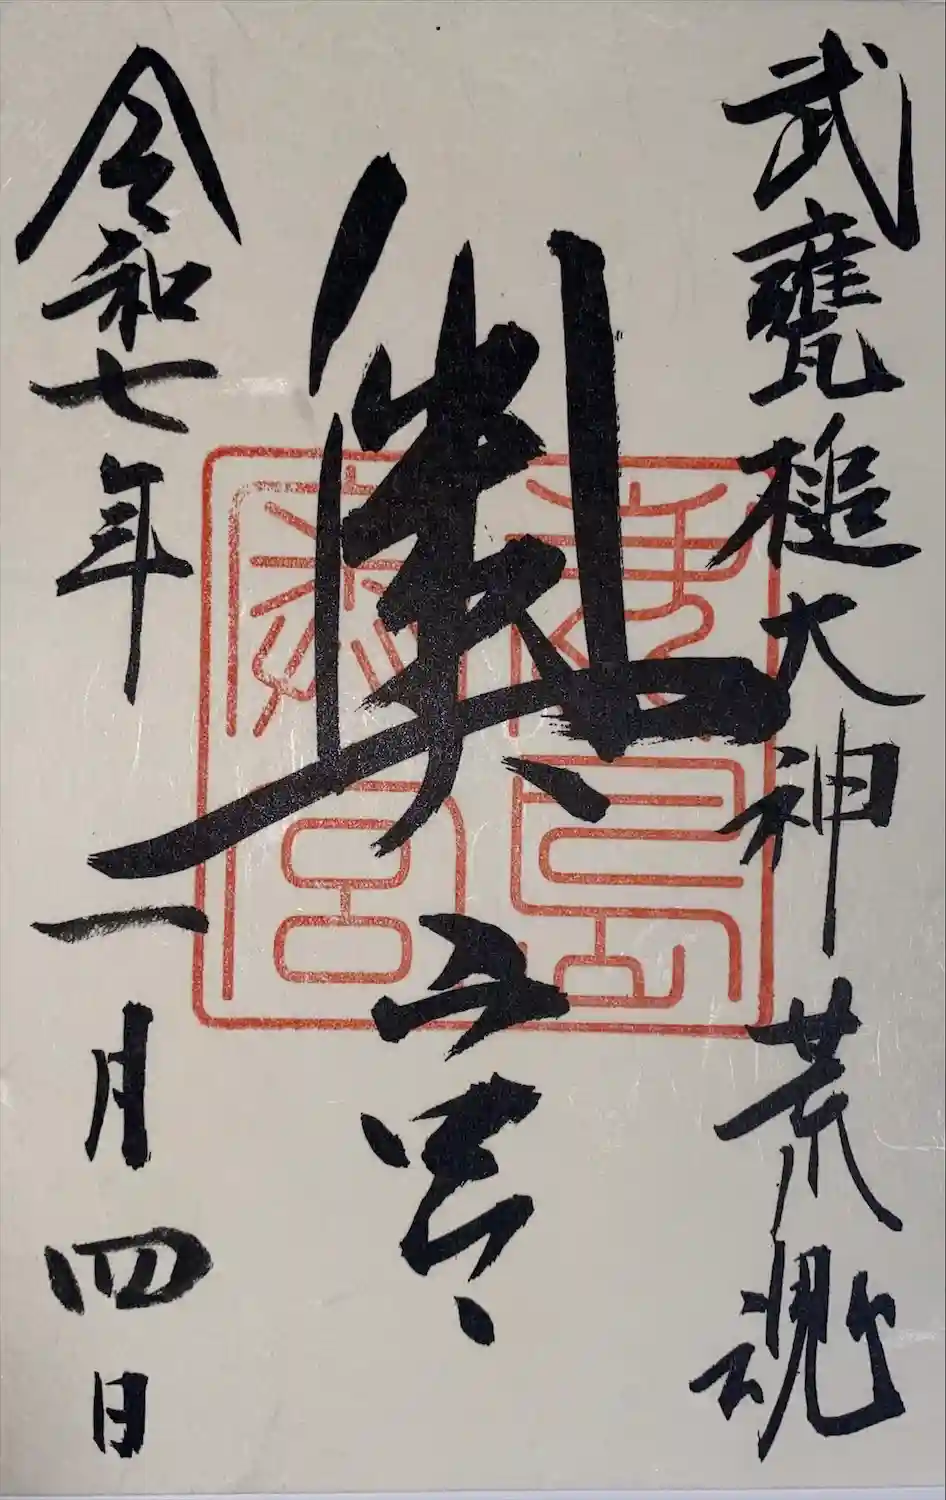 武甕槌大神荒魂
奥宮
令和七年一月四日
鹿島奥宮